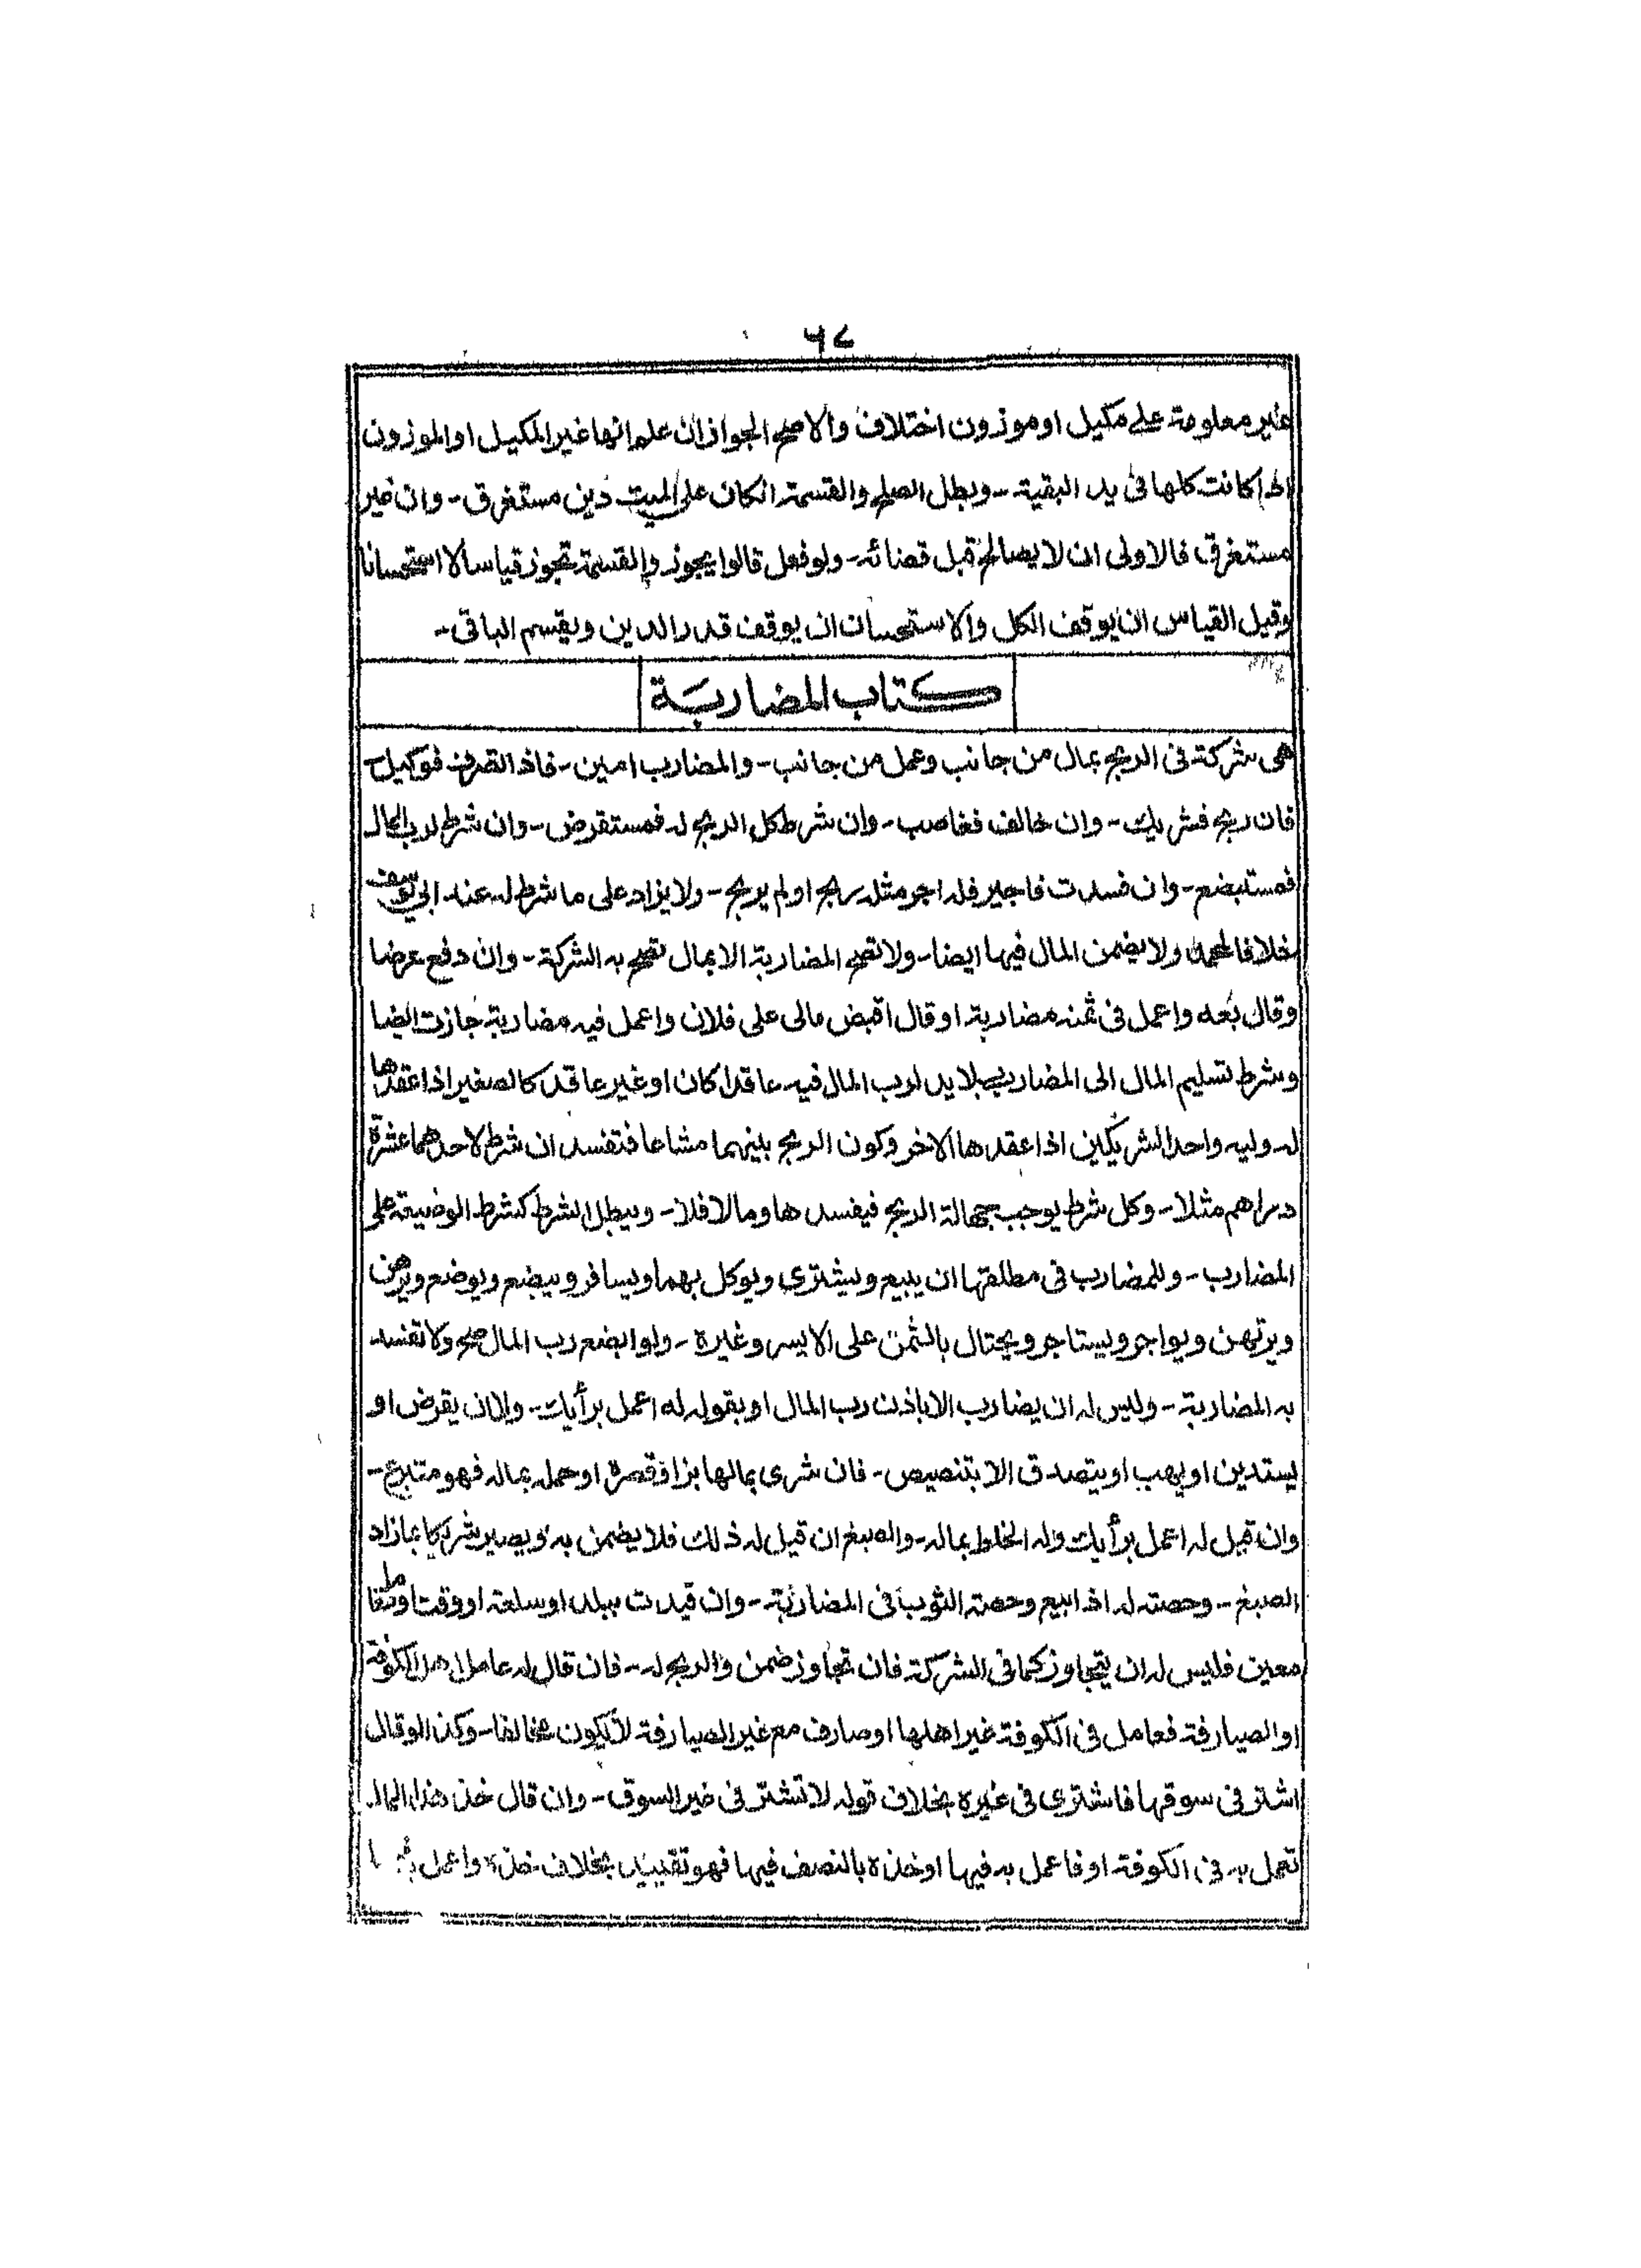 ٦٧
غير معلومة على مكيل او موزون اختلاف والاصح الجواز ان علم انها غير المكيل او الموزون
اذا كانت كلها فى يد البقية - وبطل الصلح والقسمة ان كان على الميت دين مستغرق - وان غير
مستغرق فالاولى ان لا يصالح قبل قضائه - ولو فعل قالوا يجوز والقسمة تجوز قياسا لا استحسانا
وقيل القياس ان يوقف الكل والاستحسان ان يوقف قدر الدين ويقسم الباقى -
كتاب المضاربة
هى شركة فى الربح بمال من جانب وعمل من جانب - والمضارب امين - فاذا تصرف فوكيل
فان ربح فشريك - وان خالف فغاصب - وان شرط كل الربح له فمستقرض - وان شرط لرب المال
فمستبضع - وان فسدت فاجير فله اجر مثله ربح او لم يربح - ولا يزاد على ما شرط له عند ابي يوسف
خلافا لمحمد ولا يضمن المال فيها ايضا - ولا تصح المضاربة الا بمال تصح به الشركة - وان دفع عرضا
وقال بعه واعمل فى ثمنه مضاربة او قال اقبض مالى على فلان واعمل فيه مضاربة جازت ايضا
وشرط تسليم المال الى المضارب بلا يد لرب المال فيه عاقدا كان او غير عاقد كالصغير اذا عقدها
له وليه واحد الشريكين اذا عقدها الاخر وكون الربح بينهما مشاعا فتفسد ان شرط لاحدهما عشرة
دراهم مثلا - وكل شرط يوجب جهالة الربح فيفسدها وما لا فلا - ويبطل الشرط كشرط الوضيعة على
المضارب - وللمضارب فى مطلقها ان يبيع ويشترى ويوكل بهما ويسافر ويبضع ويوضع ويرهن
ويرتهن ويواجر ويستاجر ويحتال بالثمن على الايسر وغيره - ولو ابضع رب المال صح ولا تفسد
به المضاربة - وليس له ان يضارب الا باذن رب المال او بقوله له اعمل برأيك - ولا ان يقرض او
يستدين او يهب او يتصدق الا بتنصيص - فان شرى بمالها بزا وقصره او حمله بماله فهو متبرع -
وان قيل له اعمل برأيك وله الخلط بماله - والصبغ ان قيل له ذلك فلا يضمن به ويصير شريكا بما زاد
الصبغ - وحصته له اذا بيع وحصة الثوب فى المضاربة - وان قيدت ببلد او سلعة او وقت او معاملا
معين فليس له ان يتجاوز كما فى الشركة فان تجاوز ضمن والربح له - فان قال له عامل اهل الكوفة
او الصيارفة فعامل فى الكوفة غير اهلها او صارف مع غير الصيارفة لا يكون مخالفا - وكذا لو قال
اشتر فى سوقها فاشترى فى غيره بخلاف قوله لا تشتر فى غير السوق - وان قال خذ هذا المال
تعمل به فى الكوفة او فاعمل به فيها او خذه بالنصف فيها فهو تقييد بخلاف خذه واعمل به